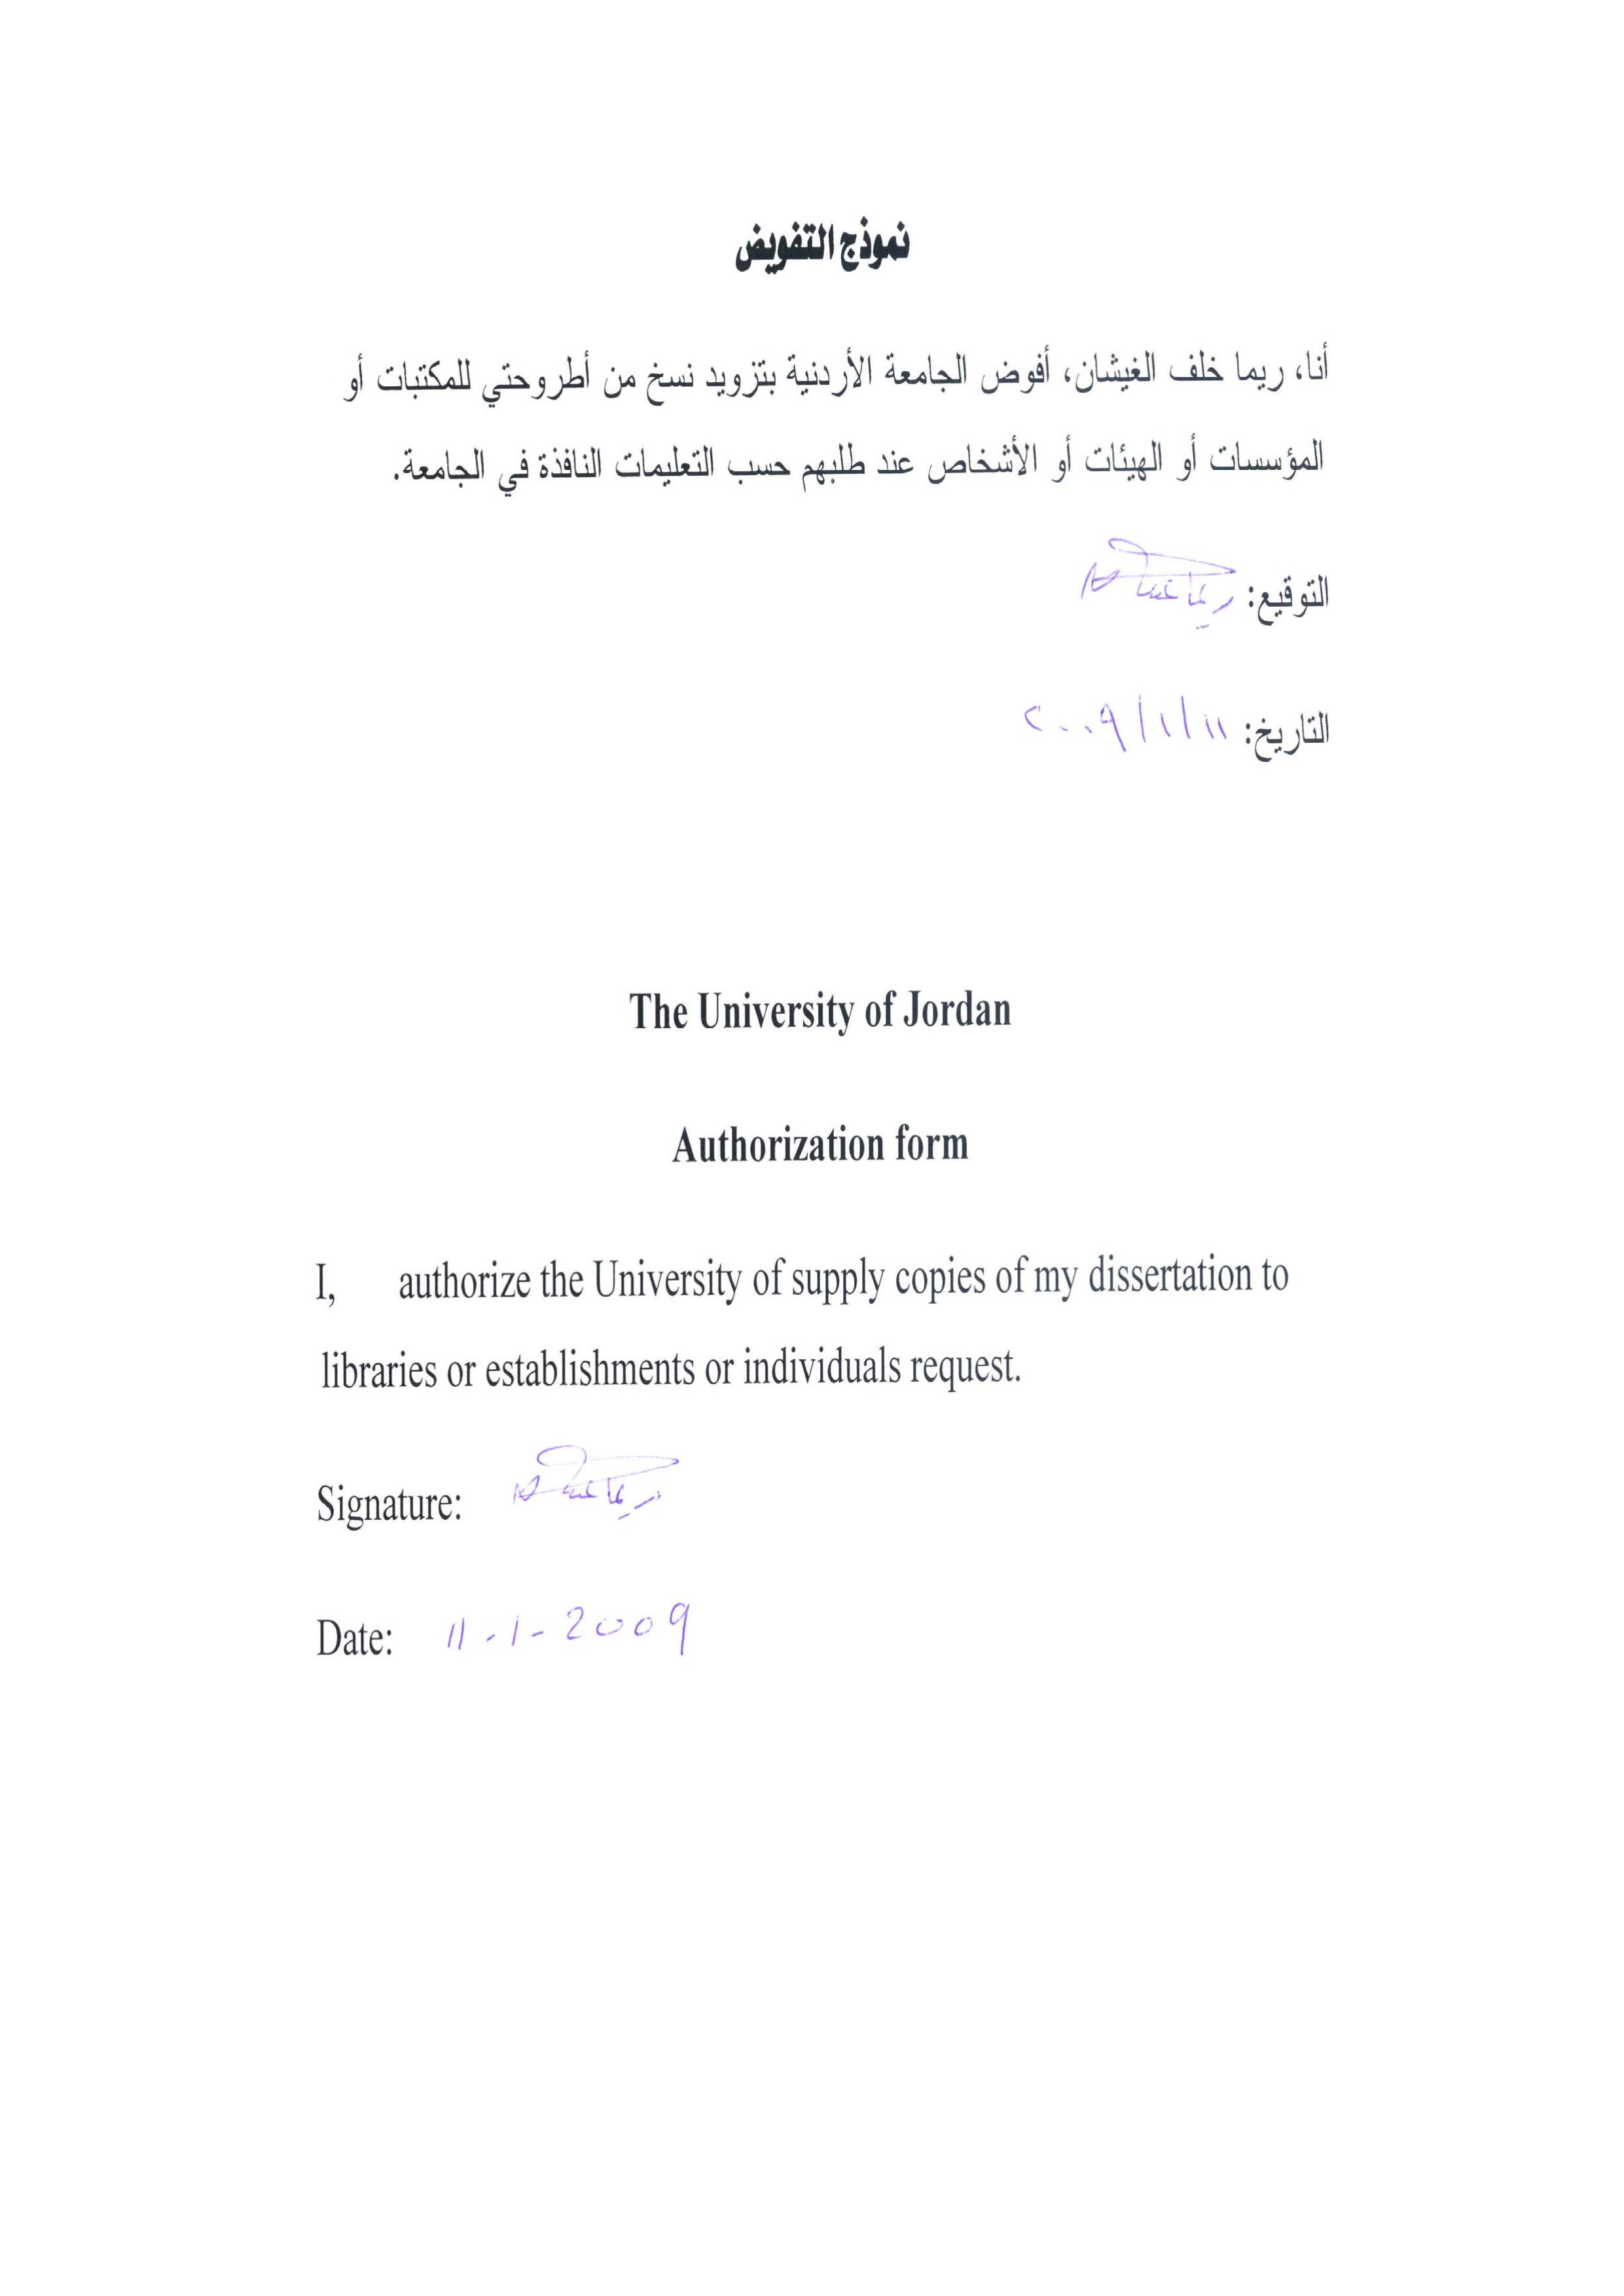 نموذج التفويض
أنا، ريما خلف الغيشان، أفوض الجامعة الأردنية بتزويد نسخ من أطروحتي للمكتبات أو
المؤسسات أو الهيئات أو الأشخاص عند طلبهم حسب التعليمات النافذة في الجامعة.
التوقيع:
التاريخ: ١١/١/٢٠٠٩
The University of Jordan
Authorization form
I, authorize the University of supply copies of my dissertation to
libraries or establishments or individuals request.
Signature:
Date: 11-1-2009